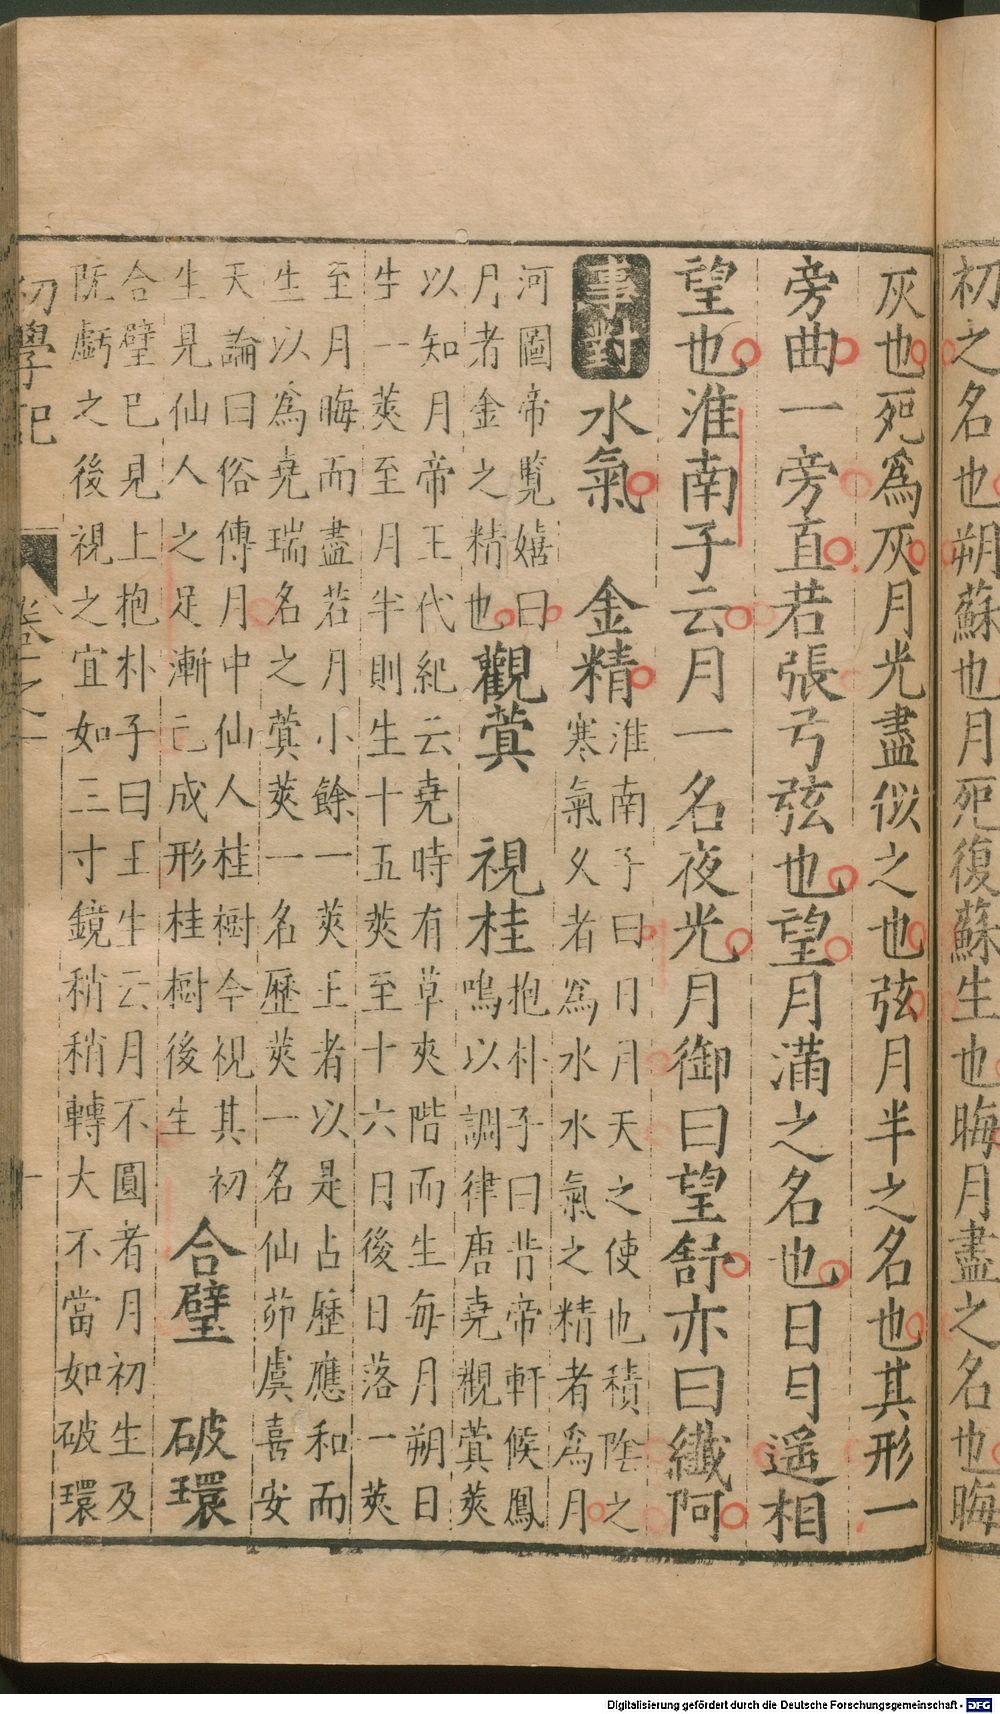 初之名也朔蘇也月死復蘇生也晦月盡之名也晦
灰也死爲灰月光盡似之也弦月半之名也其形一
旁曲一旁直若張弓弦也望月滿之名也日月遥相
望也淮南子云月一名夜光月御曰望舒亦曰纎阿
事對 水氣 金精 淮南子曰月天之使也積陰之
寒氣久者爲水水氣之精者爲月
河圖帝覧嬉曰
月者金之精也 觀蓂 視桂 抱朴子曰昔帝軒候鳳
鳴以調律唐堯觀蓂莢
以知月帝王代紀云堯時有草夾階而生每月朔日
生一莢至月半則生十五莢至十六日後日落一莢
至月晦而盡若月小餘一莢王者以是占歷應和而
生以爲堯瑞名之蓂莢一名歷莢一名仙茆虞喜安
天論曰俗傳月中仙人桂樹今視其初
生見仙人之足漸已成形桂樹後生 合璧 破環
合璧已見上抱朴子曰王生云月不圓者月初生及
既虧之後視之宜如三寸鏡稍稍轉大不當如破環
初學記 卷之一 十
Digitalisierung gefördert durch die Deutsche Forschungsgemeinschaft - DFG